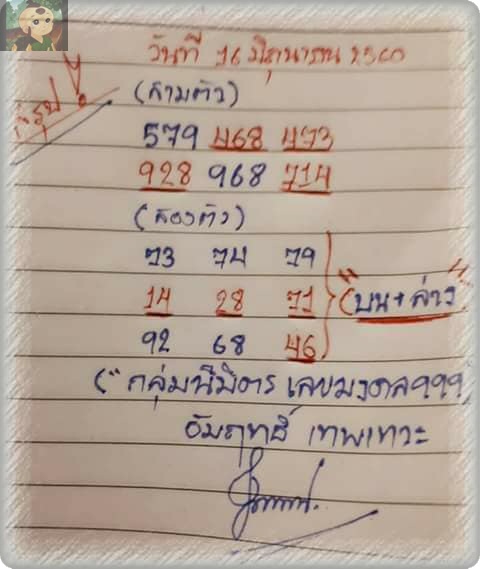 วันที่ 16 มิถุนายน 2560
สรุป!
(สามตัว)
579 468 473
928 968 714
(สองตัว)
73 74 79
14 28 71 "บน+ล่าง"
92 68 46
("กลุ่มนิมิตร เลขมงคล999
อัมฤทธิ์ เทพเทวะ